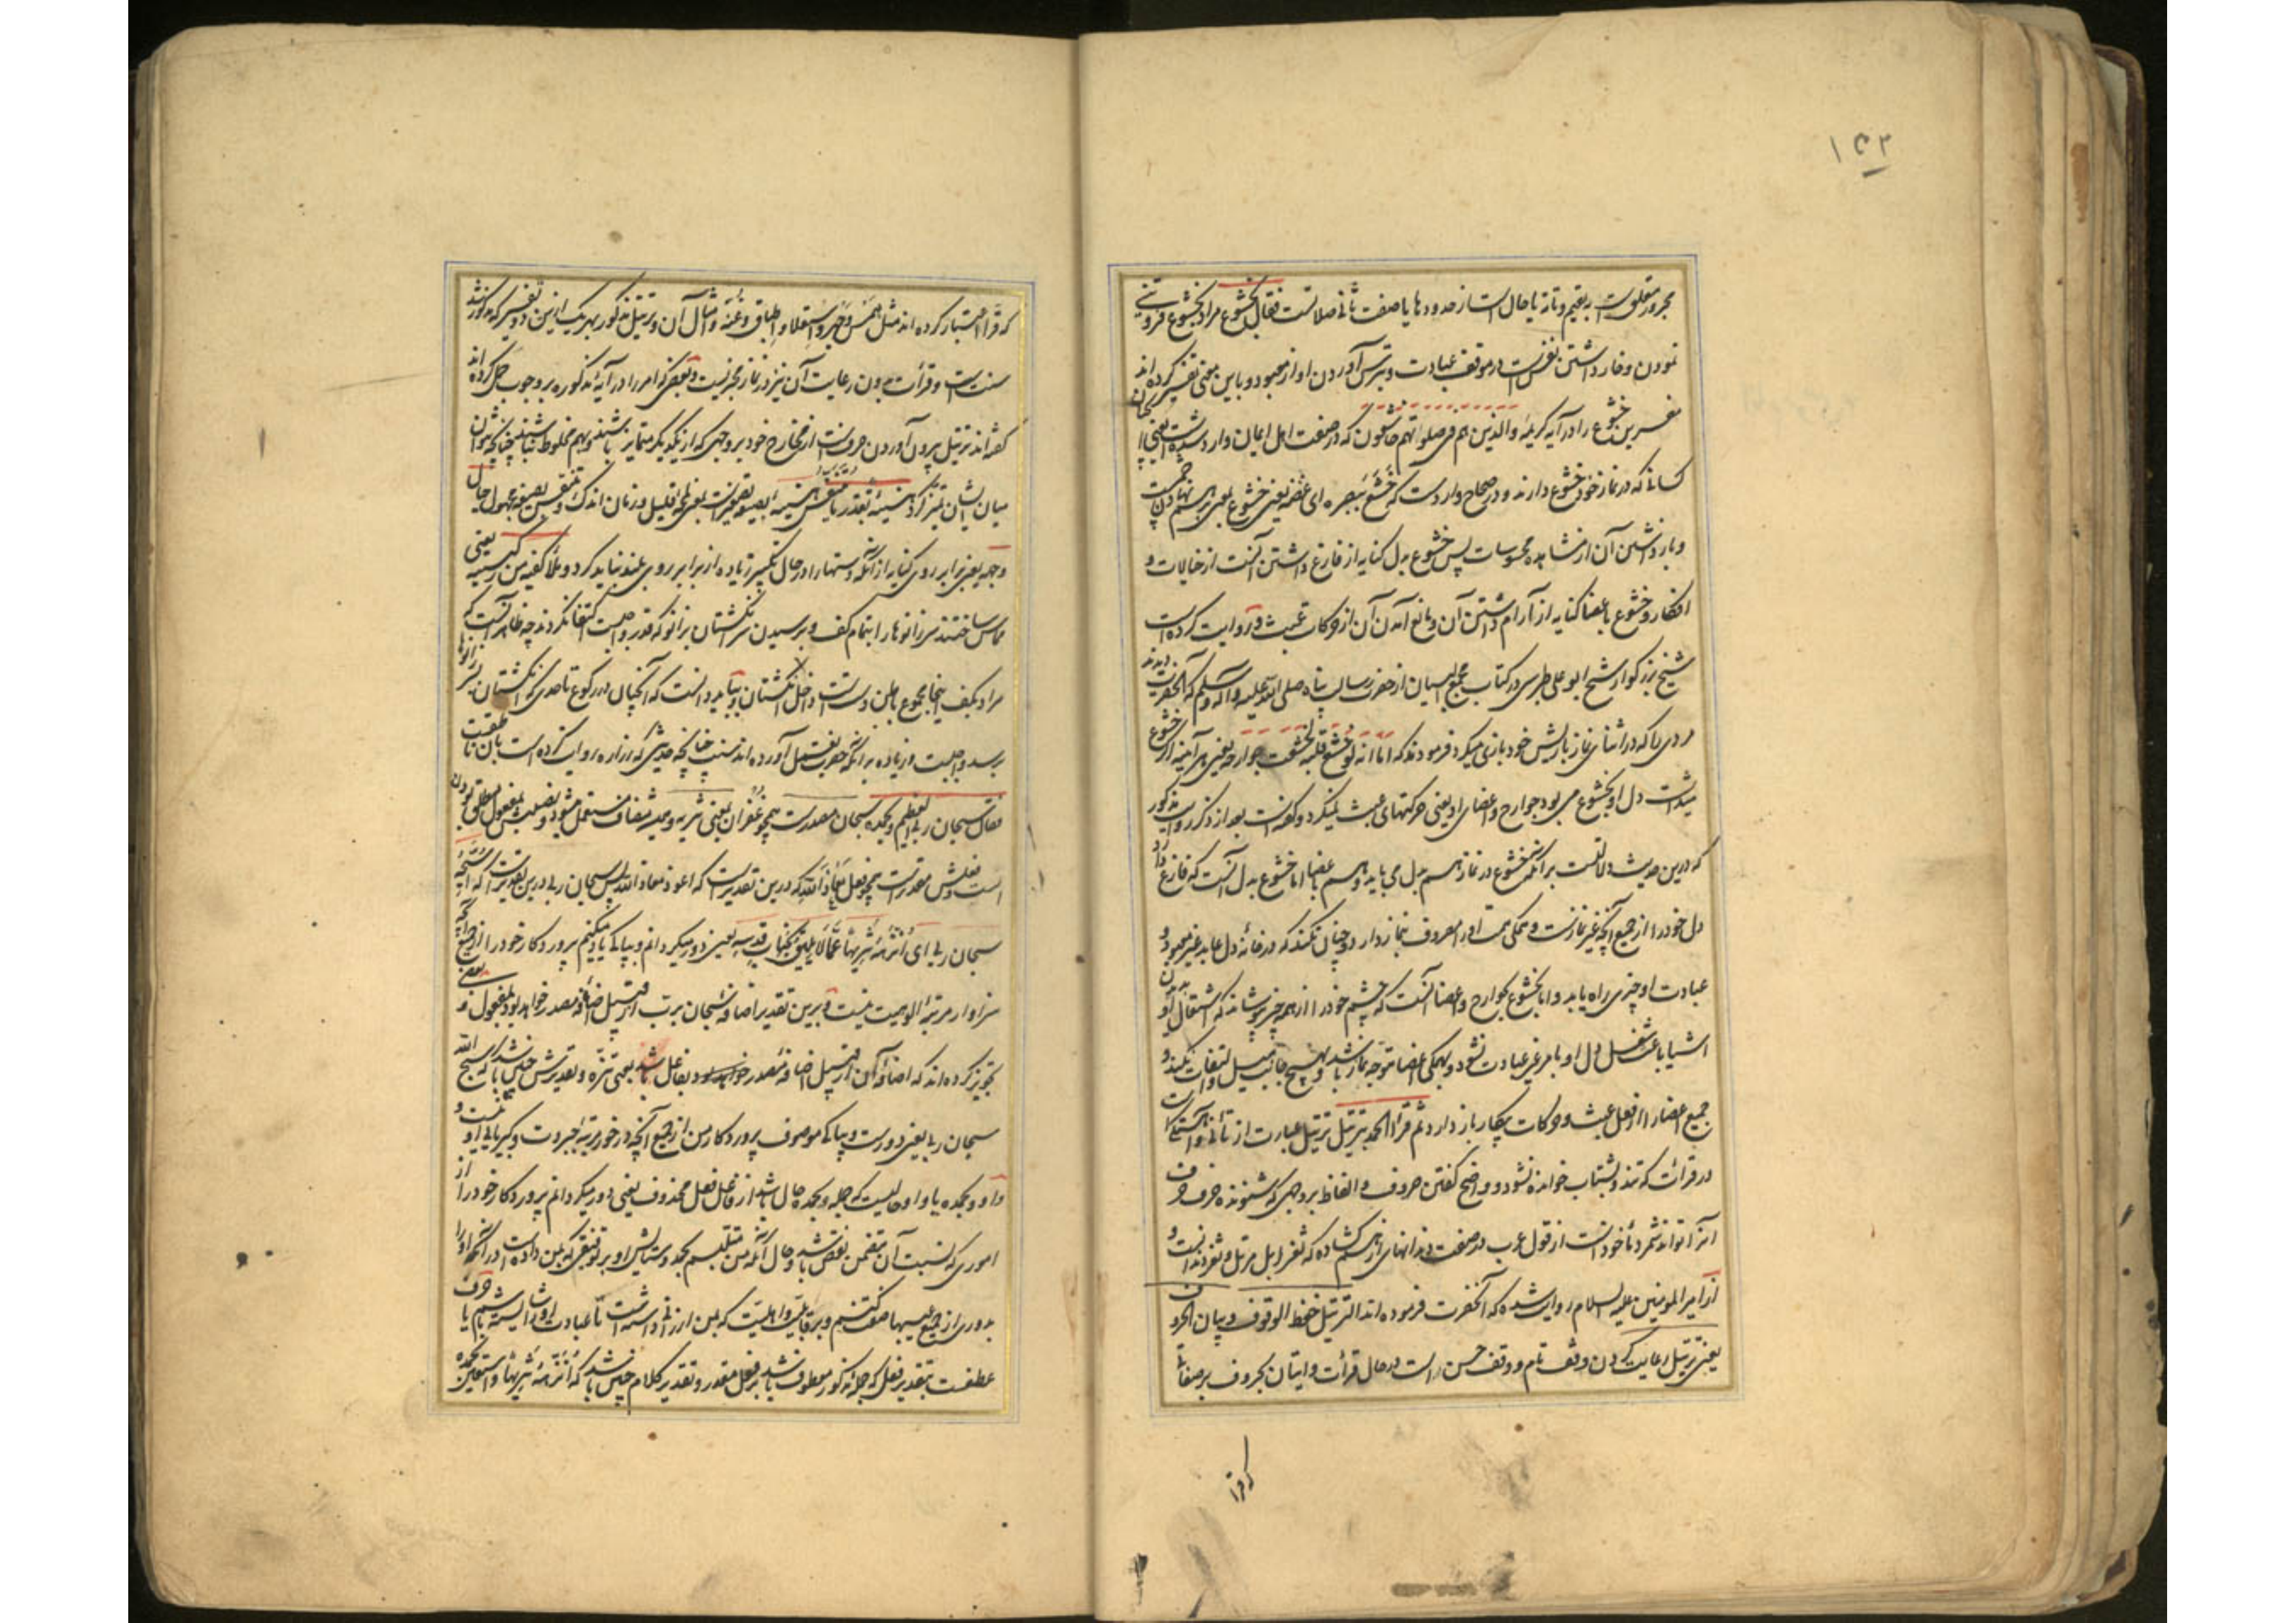 ۱۵۲
مجرور متعلق است به یقیم و تامة یا حال است از حدودها یا صفت ثانی صلاتست فقال بخشوع مراد بخشوع فروتنی
نمودن و فار داشتن نفس است در موقف عبادت و بترس آوردن او از معبود و باین معنی تفسیر کرده اند
مفسرین خشوع را در آیه کریمه والذین هم فی صلواتهم خاشعون که در صفت اهل ایمان وارد شده است یعنی
کسانی که در نماز خود خشوع دارند و در صحاح وارد است که خشع ببصره ای غضه یعنی خشوع بصر بر هم نهادن چشمست
و باز داشتن آن از مشاهده محسوسات پس خشوع بدل کنایه از فارغ داشتن آنست از خیالات و
افکار و خشوع باعضا کنایه از آرام داشتن آن و مانع آمدن آن از حرکات عبث و روایت کرده است
شیخ بزرگوار شیخ ابو علی طبرسی در کتاب مجمع البیان از حضرت رسالت پناه صلی الله علیه و آله وسلم که آنحضرت دیدند
مردی را که در اثنای نماز با ریش خود بازی میکرد فرمودند که اما انه لو خشع قلبه لخشعت جوارحه یعنی هر آینه اگر خشوع
میداشت دل او بخشوع می بود جوارح و اعضای او یعنی حرکتهای عبث نمیکرد و گفته است بعد از ذکر روایت مذکور
که درین حدیث دلالتست بر آنکه خشوع در نماز هم بدل می باید و هم باعضا اما خشوع بدل آنست که فارغ دارد
دل خود را از جمیع آنچه غیر نمازست و همگی همت او را مصروف نماز دارد و چنان نکند که در خانه دل عابد غیر معبود و
عبادت او چیزی راه یابد و اما خشوع بجوارح و اعضا آنست که چشم خود را از همه چیز بپوشاند که اشتغال او بدان
اشیا باعث شغل دل او بامر غیر عبادت نشود و بهمگی اعضا متوجه نماز باشد و بهیچ جانب میل و التفات نکند و
جمیع اعضا را از فعل عبث و حرکات بیکار باز دارد ثم قرأ الحمد بترتیل ترتیل عبارت از تأنی و آهستگی است
در قرائت که تند و بشتاب خوانده نشود و واضح گفتن حروف و الفاظ بر وجهی که شنونده حرف حرف
آنرا تواند شمرد مأخوذ است از قول عرب در صفت دندانهای از هم گشاده که ثغر رتل مرتل و ثغر دندانست و
از امیر المؤمنین علیه السلام روایت شده که آنحضرت فرموده اند الترتیل حفظ الوقوف و بیان الحروف
یعنی ترتیل رعایت کردن وقف تام و وقف حسن است در حال قرائت و اتیان بحروف بر صفاتی
که قرا
که قرا اعتبار کرده اند مثل همس و جهر و استعلا و اطباق و غنه و امثال آن و ترتیل مذکور بهر یک ازین دو تفسیر که مذکور شد
سنتست و قرأت بدون رعایت آن نیز در نماز مجزیست و بعضی که امر را در آیه مذکوره بر وجوب حمل کرده اند
گفته اند ترتیل بیرون آوردن حروفست از مخارج خود بر وجهی که از یکدیگر متمایز باشند و بهم مخلوط نباشند چنانچه نتوان
میان ایشان تمیز کرد هنیئة بقدر ما یتنفس هنیئة بصیغه تصغیرست یعنی لحظه قلیل و زمان اندک و یتنفس بصیغه مجهول حیال
وجهه یعنی برابر روی کنایه از آنکه دستها را در حال تکبیر زیاده از برابر روی بلند نباید کرد و ملأ کفیه من رکبتیه یعنی
مماس ساختند سر زانوها را بتمام کف و بر سیدن سر انگشتان بزانو که قدر واجبست اکتفا نکردند چه ظاهر آنست که
مراد بکف اینجا مجموع باطن دستست و داخل انگشتان و بباید دانست که انحنای در رکوع تا حدی که انگشتان بسر زانوها
برسد واجبست و زیاده بر آنکه حضرت بفعل آورده اند سنت چنانچه حدیثی که زراره روایت کرده است بان ناطقست
فقال سبحان ربی العظیم و بحمده سبحان مصدرست همچو غفران بمعنی تنزیه و همیشه مضاف مستعمل میشود و نصبش بمفعول مطلق بودن
است و فعلش مقدرست همچو فعل معاذ الله که درین تقدیر است که اعوذ معاذ الله پس سبحان ربی درین تقدیرست که اسبحه
سبحان ربی ای انزهه تنزیها عما لا یلیق بجناب قدسه یعنی دور میگردانم و بپاکی یاد میکنم پروردگار خود را از جمیع آنچه
سزاوار مرتبه الوهیت نیست و برین تقدیر اضافه سبحان برب از قبیل اضافه مصدر خواهد بود بمفعول و بعضی
تجویز کرده اند که اضافه آن از قبیل اضافه مصدر خواهد بود بفاعل باشد بمعنی تنزه و تقدیرش چنین باشد که سبح الله
سبحان ربی یعنی دورست و بپاکی موصوف پروردگار من از جمیع آنچه در خور مرتبه جبروت و کبریای او نیست و
واو و بحمده یا واو حالیست که جمله و بحمده حال باشد از فاعل فعل محذوف یعنی دور میگردانم پروردگار خود را از
اموری که نسبت آن متضمن نقص باشد و حال آنکه من متلبسم بحمد و ستایش او بر توفیقی که بمن داده است در آنکه او را
بدوری از جمیع عیبها صفت کنم و بر قابلیت و اهلیت که بمن ارزانی داشته است تا عبادت او را شایسته باشم یا حرف
عطفست بتقدیر فعل که جمله مذکور معطوف باشد بر فعل مقدر و تقدیر کلام چنین باشد که انزهه تنزیها و استعین بحمده